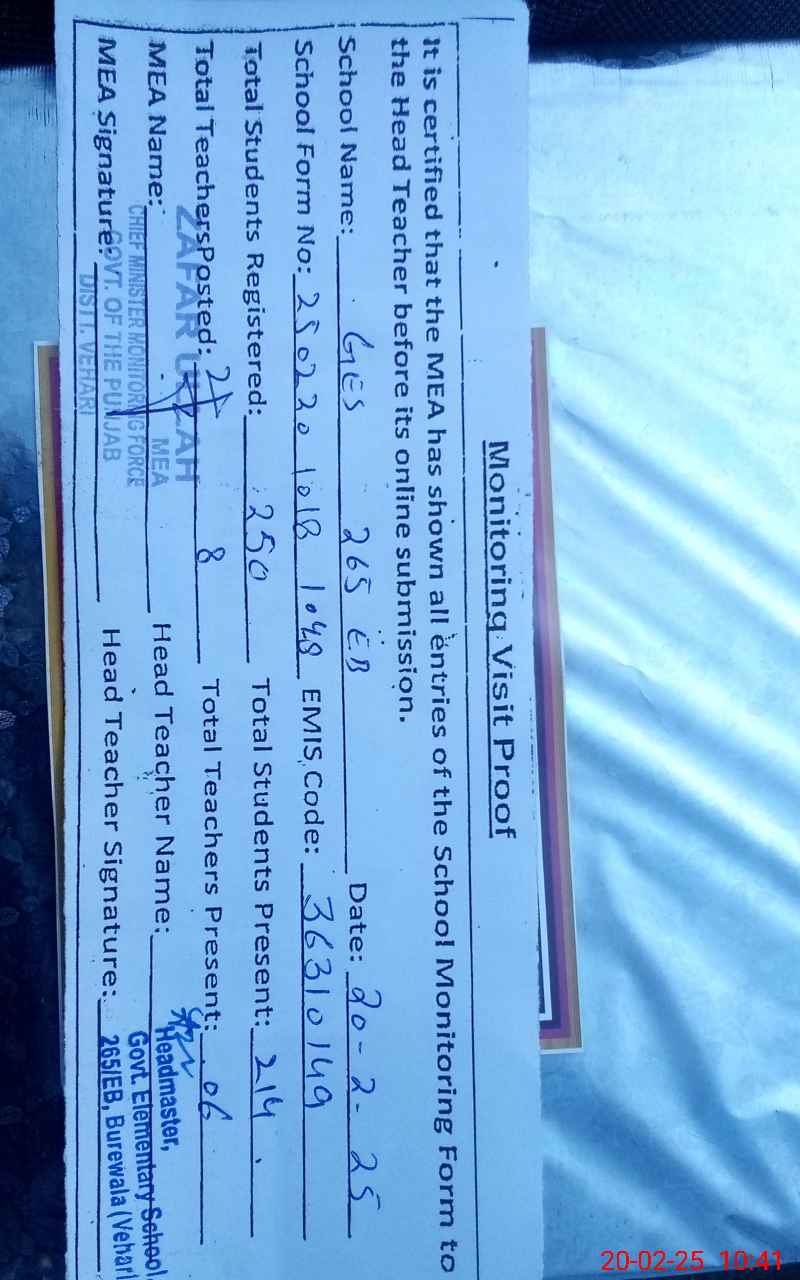 Monitoring Visit Proof
It is certified that the MEA has shown all entries of the School Monitoring Form to
the Head Teacher before its online submission.
School Name: GES 265 EB Date: 20-2-25
School Form No: 250220 1018 1048 EMIS Code: 36310149
Total Students Registered: 250 Total Students Present: 214
Total Teachers Posted: 8 Total Teachers Present: 06
MEA Name: Head Teacher Name:
MEA Signature: Head Teacher Signature:
ZAFAR ULLAH
MEA
CHIEF MINISTER MONITORING FORCE
GOVT. OF THE PUNJAB
DISTT. VEHARI
Headmaster,
Govt. Elementary School
265/EB, Burewala (Vehari
20-02-25 10:41